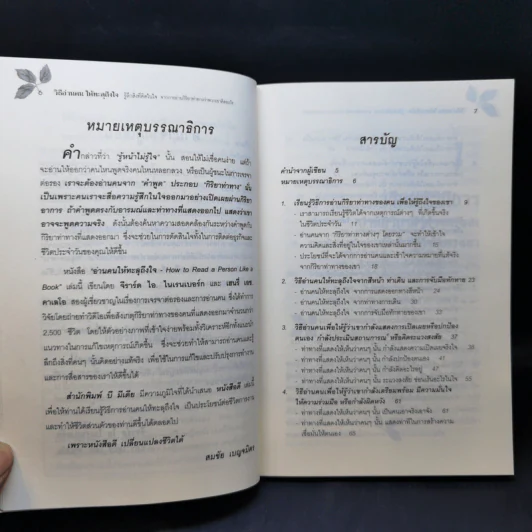 ๖ วิธีอ่านคน ให้ทะลุถึงใจ
หมายเหตุบรรณาธิการ
คำกล่าวที่ว่า "รู้หน้าไม่รู้ใจ" นั้น สอนให้ไม่เชื่อคนง่าย แต่ถ้า
จะอ่านให้ออกว่าคนไหนพูดจริงคนไหนหลอกลวง
ต่อรอง เราจะต้องอ่านคนจาก "คำพูด" ประกอบ "กิริยาท่าทาง" นั้น
เป็นเพราะคนเราจะสื่อความรู้สึกในใจออกมาอย่างเปิดเผยผ่านกิริยา
อาการ ถ้าคำพูดตรงกับอารมณ์และท่าทางที่แสดงออกไป แสดงว่าเขา
อาจจะพูดความจริง ดังนั้นต้องค้นหาความสอดคล้องกันระหว่างคำพูดกับ
กิริยาท่าทางที่แสดงออกมา ซึ่งจะช่วยในการตัดสินใจทั้งในการติดต่อธุรกิจและ
ชีวิตประจำวันของคุณให้ดีขึ้น
หนังสือ "อ่านคนให้ทะลุถึงใจ - How to Read a Person Like a
Book" เล่มนี้ เขียนโดย จิราร์ด ไอ. ไนเรนเบอร์ก และ เฮนรี่ เอช
คาเลโร สองผู้เชี่ยวชาญในเรื่องการเจรจาต่อรองและการอ่านคน ซึ่งได้ทำการ
วิจัยโดยถ่ายทำวิดีโอเพื่อสังเกตกิริยาท่าทางของคนที่แสดงออกมาจำนวนกว่า
2,500 ชีวิต โดยให้ตัวอย่างภาพที่เข้าใจง่ายพร้อมทั้งวิเคราะห์ลึกทั้งแนะนำ
แนวทางในการแก้ไขเหตุการณ์นั้นเกิดขึ้น ซึ่งจะช่วยทำให้สามารถอ่านคนและรู้
ลึกถึงสิ่งที่คนๆ นั้นคิดอย่างแท้จริง เพื่อใช้ในการแก้ไขและปรับปรุงการทำงาน
และการสื่อสารของเราให้ดีขึ้น
สำนักพิมพ์ บี มีเดีย มีความภูมิใจที่ได้นำเสนอ หนังสือดี เล่มนี้
เพื่อให้ท่านได้เรียนรู้วิธีการอ่านคนให้ทะลุถึงใจ เป็นประโยชน์ต่อชีวิตการงาน
และทำให้ชีวิตส่วนตัวของท่านดีขึ้นได้ตลอดไป
เพราะหนังสือดี เปลี่ยนแปลงชีวิตได้
สมชัย เบญจมิตร
7
สารบัญ
คำนำจากผู้เขียน 5
หมายเหตุบรรณาธิการ 6
1. เรียนรู้วิธีการอ่านกิริยาท่าทางของคน เพื่อให้รู้ถึงใจของเขา 9
- เราสามารถเรียนรู้ชีวิตได้จากเหตุการณ์ต่างๆ ที่เกิดขึ้นจริง
ในชีวิตประจำวัน 11
- อ่านคนจาก "กิริยาท่าทางต่างๆ โดยรวม" จะทำให้เข้าใจ
ความคิดและสิ่งที่อยู่ในใจของเขาเหล่านั้นมากขึ้น 15
- ประโยชน์ที่จะได้จากการอ่านคนและเข้าใจความหมายที่แท้จริง
จากกิริยาท่าทางของเขา 21
2. วิธีอ่านคนให้ทะลุถึงใจจากสีหน้า ท่าเดิน และการจับมือทักทาย 23
- อ่านคนให้ทะลุถึงใจ จากการแสดงออกทางสีหน้า 23
- อ่านคนให้ทะลุถึงใจ จากท่าทางการเดิน 30
- อ่านคนให้ทะลุถึงใจ จากการจับมือทักทาย 32
3. วิธีอ่านคนเพื่อให้รู้ว่าเขากำลังแสดงการเปิดเผยหรือปกป้อง
ตนเอง กำลังประเมินสถานการณ์ หรือคิดระแวงสงสัย 37
- ท่าทางที่แสดงให้เห็นว่าคนๆ นั้น กำลังแสดงความเปิดเผยจริงใจ
- ท่าทางที่แสดงให้เห็นว่าคนๆ นั้น กำลังปกป้องตนเอง 41
- ท่าทางที่แสดงให้เห็นว่าคนๆ นั้น กำลังคิดอะไรอยู่
- ท่าทางที่แสดงให้เห็นว่าคนๆ นั้น ระแวงสงสัย
4. วิธีอ่านคนเพื่อให้รู้ว่าเขากำลังเตรียมพร้อม มีความมั่นใจ
ให้ความร่วมมือ หรือกำลังผิดหวัง 65
- ท่าทางที่แสดงให้เห็นว่าคนๆ นั้น เป็นคนเอาจริงเอาจัง
- ท่าทางที่แสดงให้เห็นว่าคนๆ นั้น
เชื่อมั่นให้ตนเอง 65